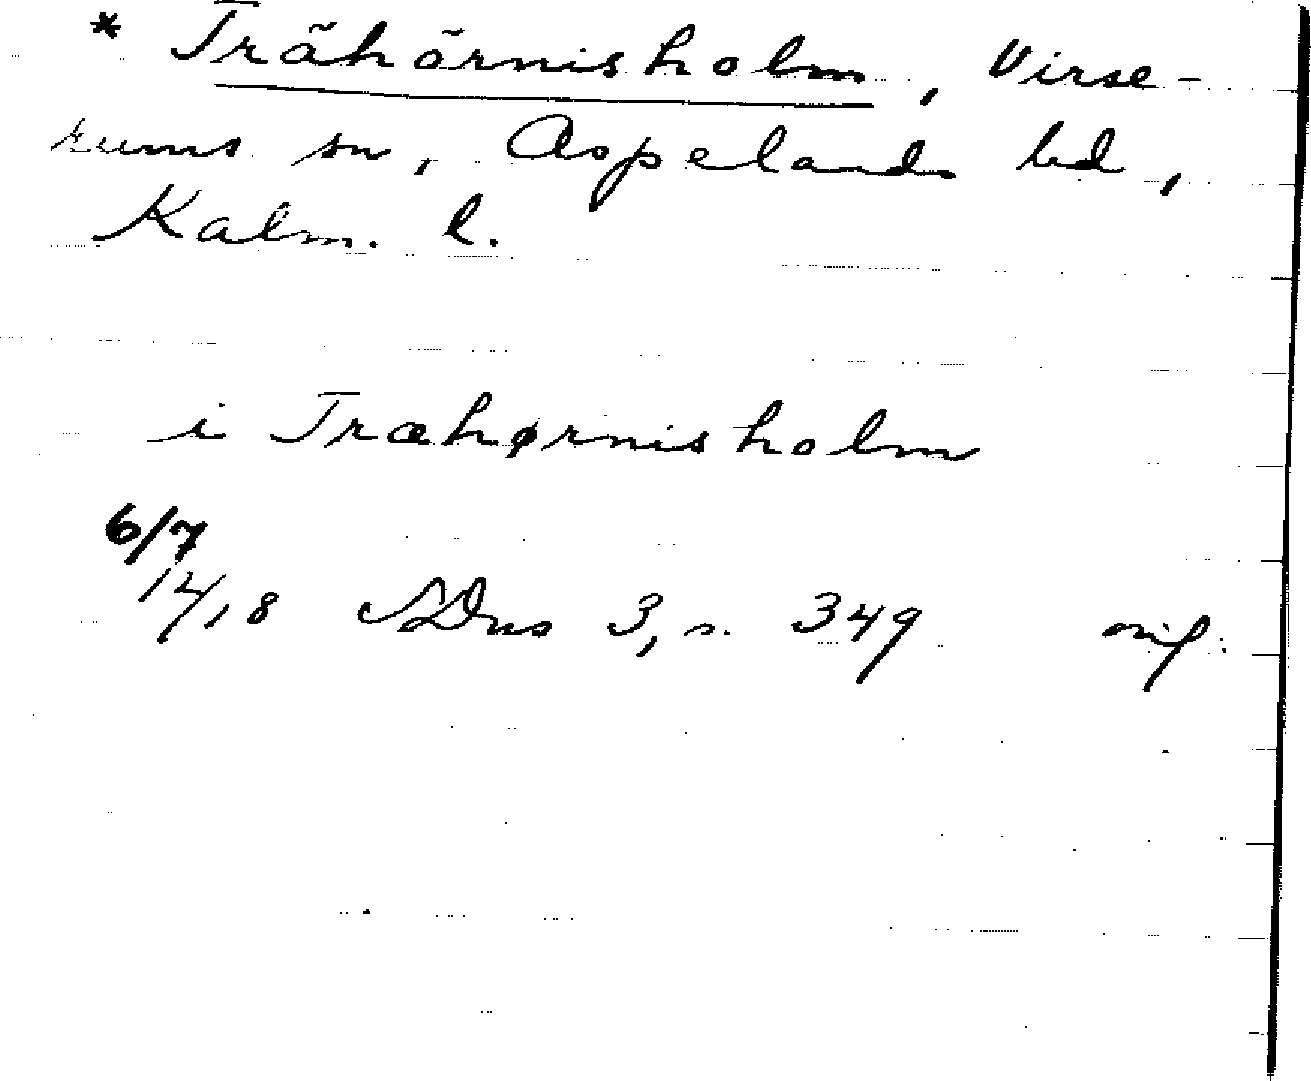 * Trähörnisholm, Virse-
rums sn, Aspelands hd,
Kalm. l.
i Træhørnisholm
6/7
14/18 SDns 3, s. 349